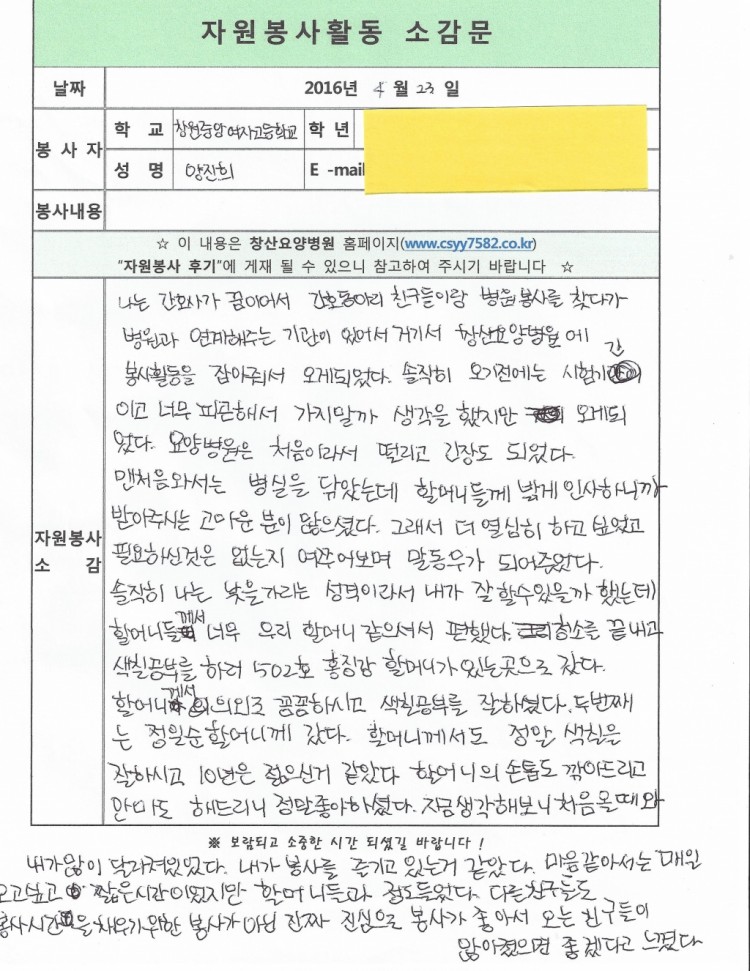 자원봉사활동 소감문
날짜 2016년 4 월 23 일
봉사자 학 교 창원중앙여자고등학교 학 년
성 명 양진희 E -mail
봉사내용
☆ 이 내용은 창산요양병원 홈페이지(www.csyy7582.co.kr)
"자원봉사 후기"에 게재 될 수 있으니 참고하여 주시기 바랍니다 ☆
자원봉사
소 감
나는 간호사가 꿈이어서 간호동아리 친구들이랑 병원봉사를 찾다가
병원과 연계해주는 기관이 있어서 거기서 창산요양병원에
봉사활동을 잡아줘서 오게되었다. 솔직히 오기전에는 시험기간
이고 너무 피곤해서 가지말까 생각을 했지만 오게되
었다. 요양병원은 처음이라서 떨리고 긴장도 되었다.
맨처음와서는 병실을 닦았는데 할머니들께 밝게 인사하니까
받아주시는 고마운 분이 많으셨다. 그래서 더 열심히 하고 싶었고
필요하신것은 없는지 여쭈어보며 말동무가 되어주었다.
솔직히 나는 낯을가리는 성격이라서 내가 잘 할수있을까 했는데
할머니들께서 너무 우리 할머니 같으셔서 편했다. 청소를 끝내고
색칠공부를 하러 502호 홍징감 할머니가 있는곳으로 갔다.
할머니께서 의외로 꼼꼼하시고 색칠공부를 잘하셨다. 두번째
는 정일순할머니께 갔다. 할머니께서도 정말 색칠을
잘하시고 10년은 젊으신거 같았다 할머니의 손톱도 깎아드리고
안마도 해드리니 정말좋아하셨다. 지금생각해보니 처음올때와
※ 보람되고 소중한 시간 되셨길 바랍니다 !
내가많이 달라져있었다. 내가 봉사를 즐기고 있는거 같았다. 마음같아서는 매일
오고싶고 짧은시간이었지만 할머니들과 정도들었다. 다른친구들도
봉사시간을 채우기위한 봉사가 아닌 진짜 진심으로 봉사가 좋아서 오는 친구들이
많아졌으면 좋겠다고 느꼈다